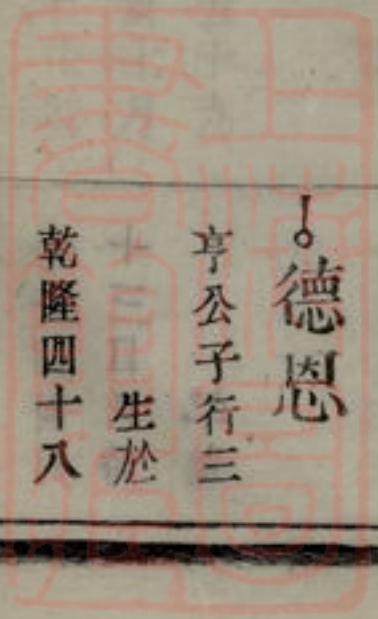 德恩
亨公子行三
生於
乾隆四十八